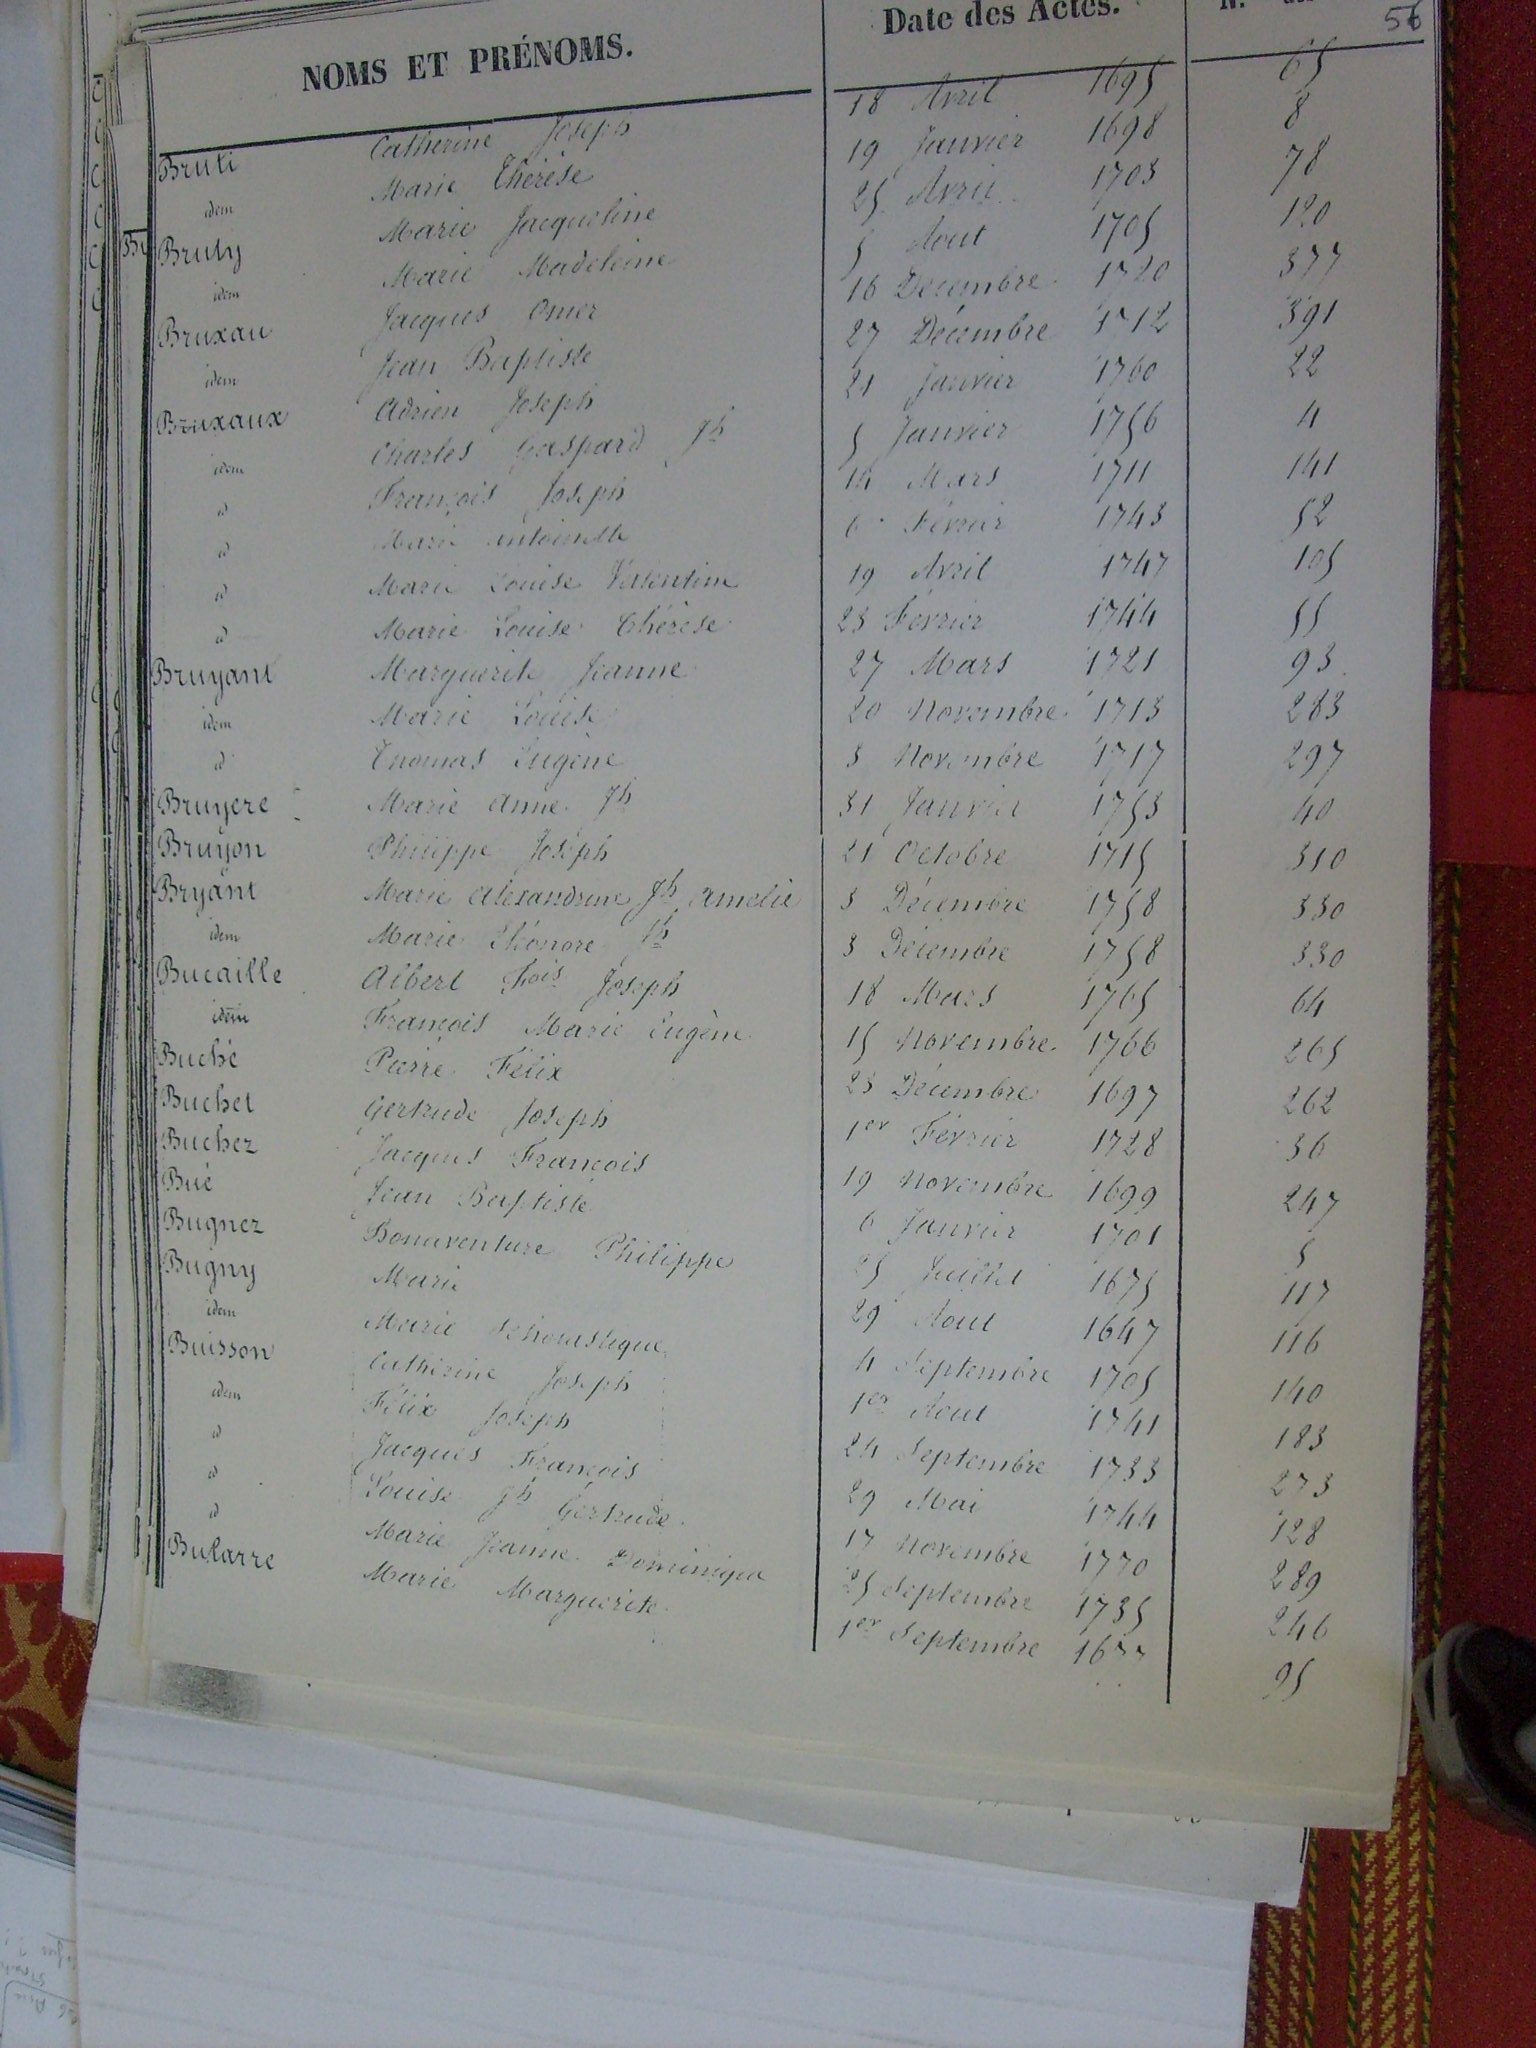 NOMS ET PRÉNOMS. Date des Actes. N. 56
Bruti Catherine Joseph 18 Avril 1695 65
idem Marie Thérèse 19 Janvier 1698 8
Bruty Marie Jacqueline 25 Avril 1703 78
idem Marie Madeleine 5 Aout 1705 120
Bruxau Jacques Omer 16 Decembre 1720 377
idem Jean Baptiste 27 Décembre 1712 391
Bruxaux Adrien Joseph 21 Janvier 1760 22
idem Charles Gaspard Jh 5 Janvier 1756 4
id François Joseph 14 Mars 1711 141
id Marie Antoinette 6 Février 1743 52
id Marie Louise Valentine 19 Avril 1747 105
id Marie Louise Thérèse 23 Février 1744 55
Bruyant Marguerite Jeanne 27 Mars 1721 93
idem Marie Louise 20 Novembre 1713 283
id Thomas Eugène 3 Novembre 1717 297
Bruyere Marie Anne Jh 31 Janvier 1753 40
Bruyon Philippe Joseph 21 Octobre 1715 310
Bryant Marie Alexandrine Jh Amelie 3 Décembre 1758 330
idem Marie Eléonore Jh 3 Décembre 1758 330
Bucaille Albert Fois Joseph 18 Mars 1765 64
idem François Marie Eugène 15 Novembre 1766 265
Buché Pierre Félix 23 Décembre 1697 262
Buchet Gertrude Joseph 1er Février 1728 36
Buchez Jacques François 19 Novembre 1699 247
Bué Jean Baptiste 6 Janvier 1701 5
Bugnez Bonaventure Philippe 25 Juillet 1675 117
Bugny Marie 29 Aout 1647 116
idem Marie Scholastique 4 Septembre 1705 140
Buisson Catherine Joseph 1er Aout 1741 183
idem Félix Joseph 24 Septembre 1733 273
id Jacques François 29 Mai 1744 128
id Louise Jh Gertrude 17 Novembre 1770 289
id Marie Jeanne Dominique 25 Septembre 1735 246
Bularre Marie Marguerite 1er Septembre 1677 95